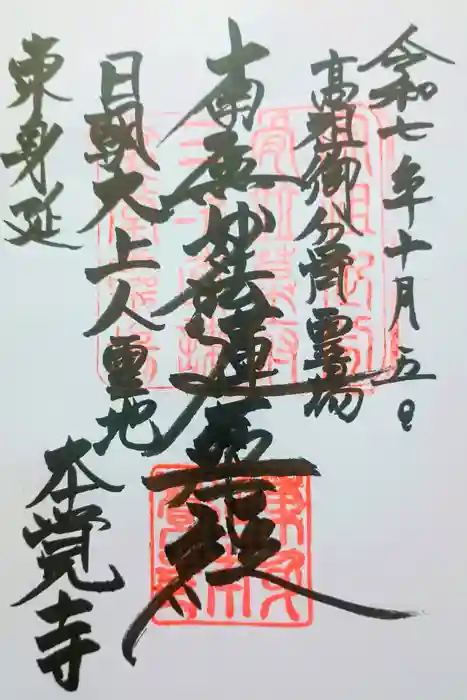 令和七年十月五日
高祖御分骨霊場
南無妙法蓮華経
日朝大上人霊地
東身延
本覚寺